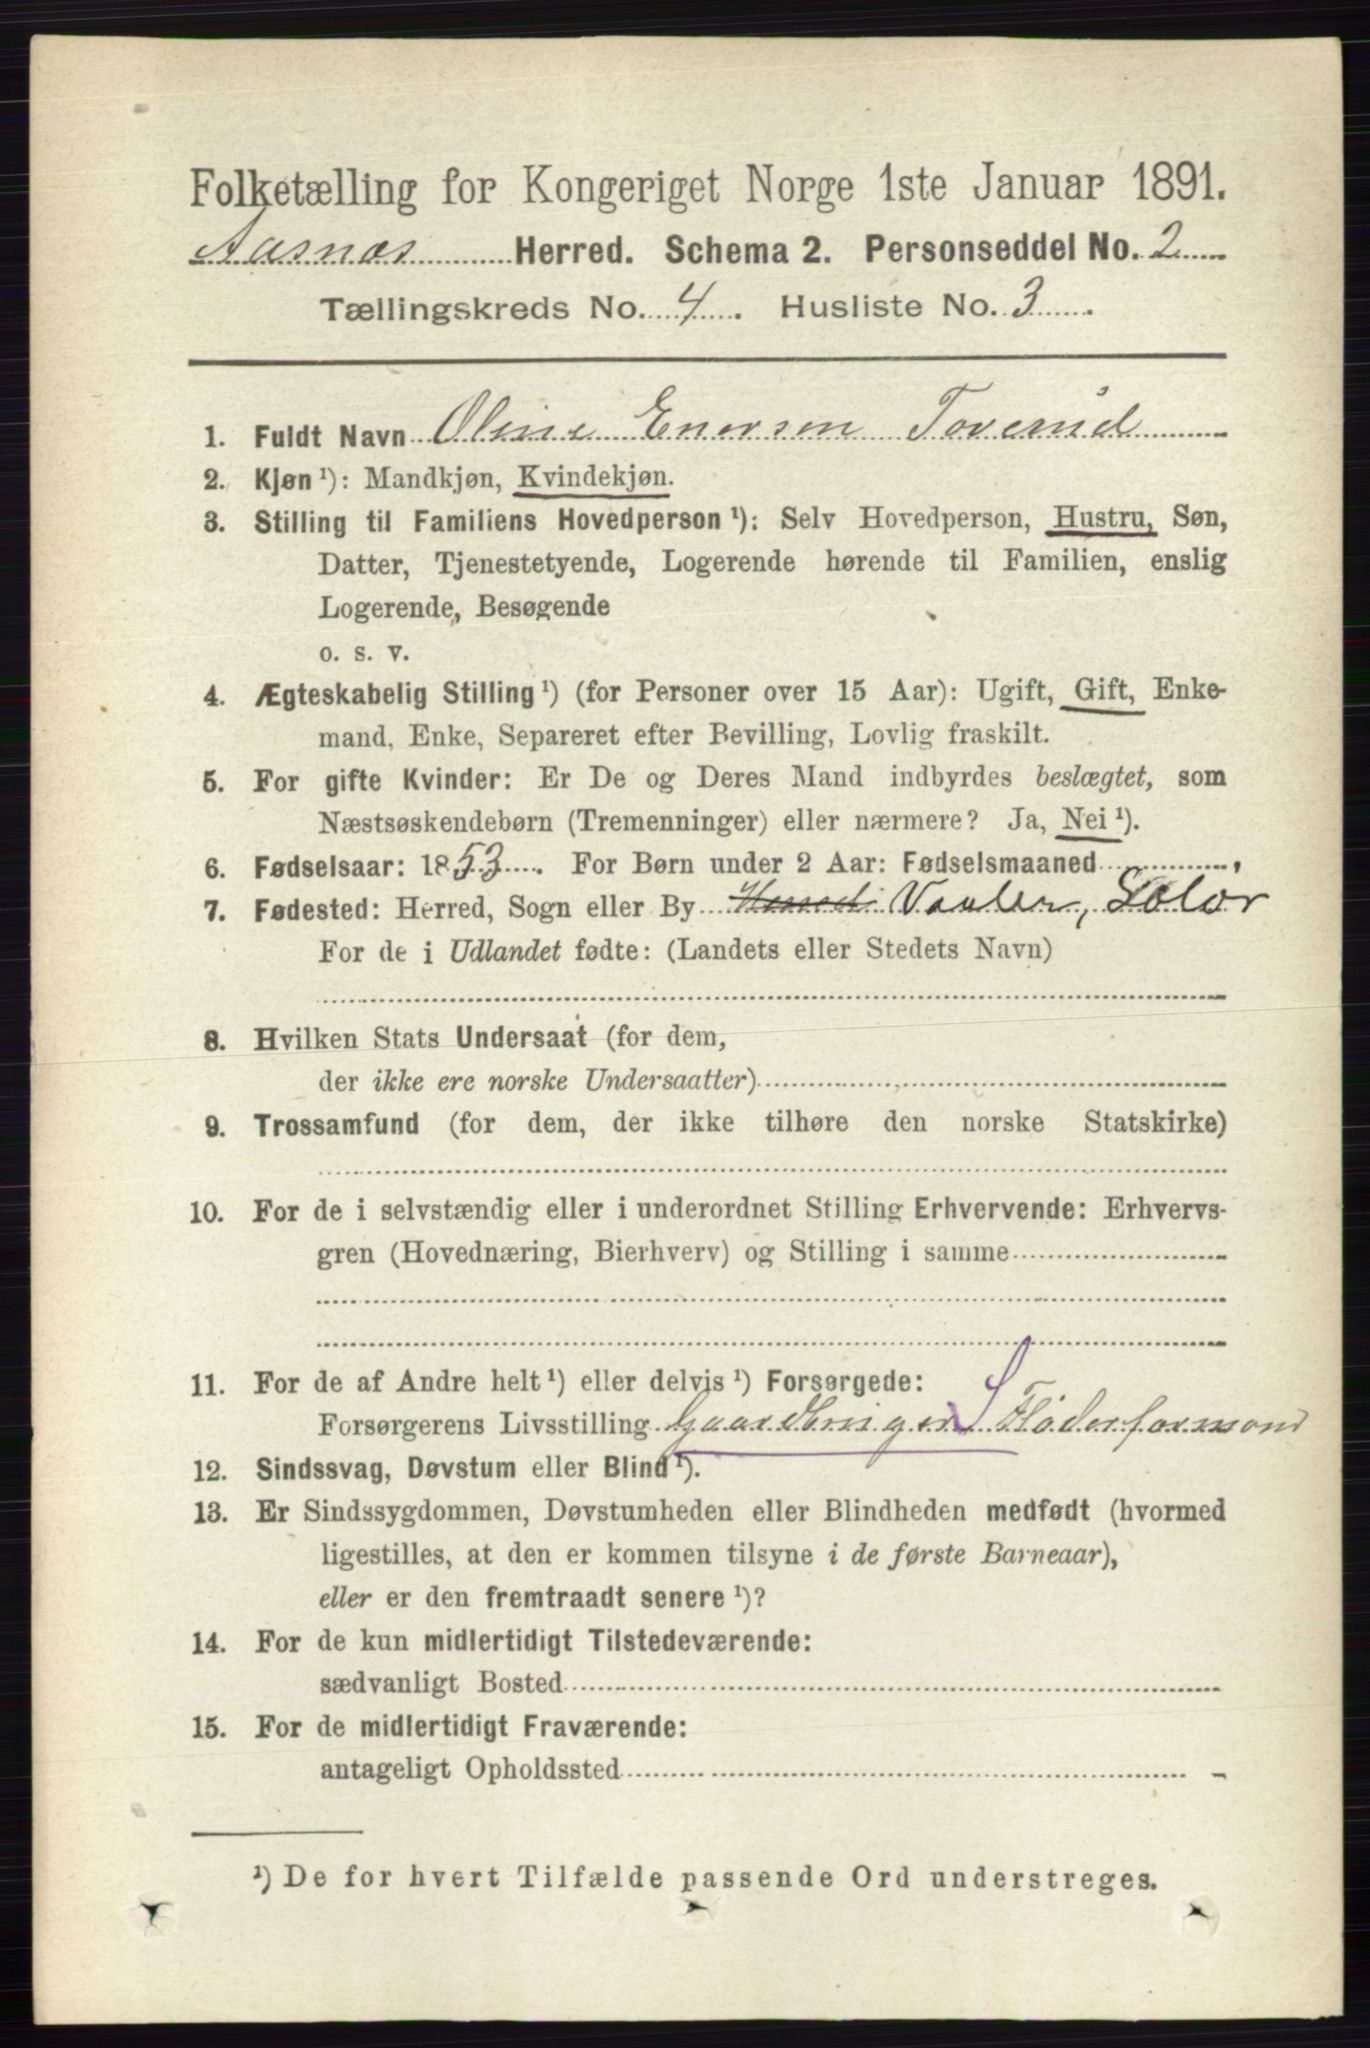 Folketælling for Kongeriget Norge 1ste Januar 1891.
Aasnæs Herred. Schema 2. Personseddel No. 2
Tællingskreds No. 4. Husliste No. 3.
1. Fuldt Navn Oline Enersen Toverud
2. Kjøn ¹): Mandkjøn, Kvindekjøn.
3. Stilling til Familiens Hovedperson ¹): Selv Hovedperson, Hustru, Søn,
Datter, Tjenestetyende, Logerende hørende til Familien, enslig
Logerende, Besøgende
o. s. v.
4. Ægteskabelig Stilling ¹) (for Personer over 15 Aar): Ugift, Gift, Enke-
mand, Enke, Separeret efter Bevilling, Lovlig fraskilt.
5. For gifte Kvinder: Er De og Deres Mand indbyrdes beslægtet, som
Næstsøskendebørn (Tremenninger) eller nærmere? Ja, Nei ¹).
6. Fødselsaar: 1853. For Børn under 2 Aar: Fødselsmaaned
7. Fødested: Herred, Sogn eller By Vaaler, Solør
For de i Udlandet fødte: (Landets eller Stedets Navn)
8. Hvilken Stats Undersaat (for dem,
der ikke ere norske Undersaatter)
9. Trossamfund (for dem, der ikke tilhøre den norske Statskirke)
10. For de i selvstændig eller i underordnet Stilling Erhvervende: Erhvervs-
gren (Hovednæring, Bierhverv) og Stilling i samme
11. For de af Andre helt ¹) eller delvis ¹) Forsørgede:
Forsørgerens Livsstilling Gaardbruger S Fløderformand
12. Sindssvag, Døvstum eller Blind ¹).
13. Er Sindssygdommen, Døvstumheden eller Blindheden medfødt (hvormed
ligestilles, at den er kommen tilsyne i de første Barneaar),
eller er den fremtraadt senere ¹)?
14. For de kun midlertidigt Tilstedeværende:
sædvanligt Bosted
15. For de midlertidigt Fraværende:
antageligt Opholdssted
¹) De for hvert Tilfælde passende Ord understreges.